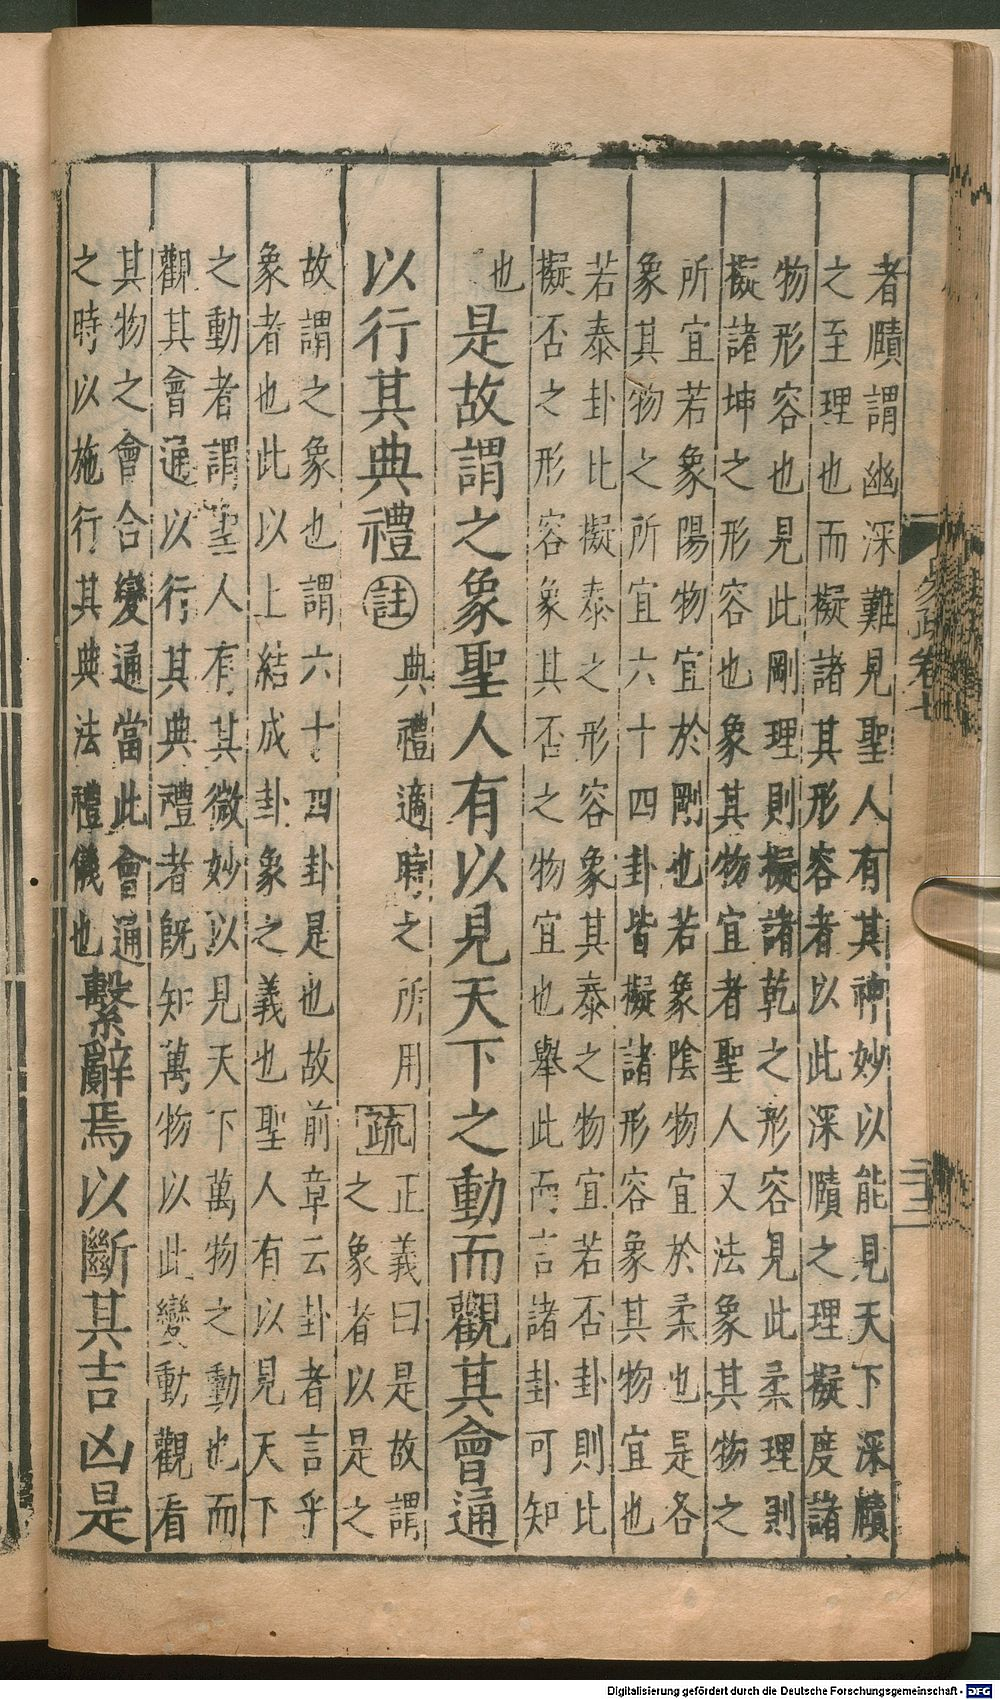 者賾謂幽深難見聖人有其神妙以能見天下深賾
之至理也而擬諸其形容者以此深賾之理擬度諸
物形容也見此剛理則擬諸乾之形容見此柔理則
擬諸坤之形容也象其物宜者聖人又法象其物之
所宜若象陽物宜於剛也若象陰物宜於柔也是各
象其物之所宜六十四卦皆擬諸形容象其物宜也
若泰卦比擬泰之形容象其泰之物宜若否卦則比
擬否之形容象其否之物宜也舉此而言諸卦可知
也
是故謂之象聖人有以見天下之動而觀其會通
以行其典禮
註
典禮適時之所用
疏
正義曰是故謂
之象者以是之
故謂之象也謂六十四卦是也故前章云卦者言乎
象者也此以上結成卦象之義也聖人有以見天下
之動者謂聖人有其微妙以見天下萬物之動也而
觀其會通以行其典禮者既知萬物以此變動觀看
其物之會合變通當此會通
之時以施行其典法禮儀也
繫辭焉以斷其吉凶是
Digitalisierung gefördert durch die Deutsche Forschungsgemeinschaft - DFG